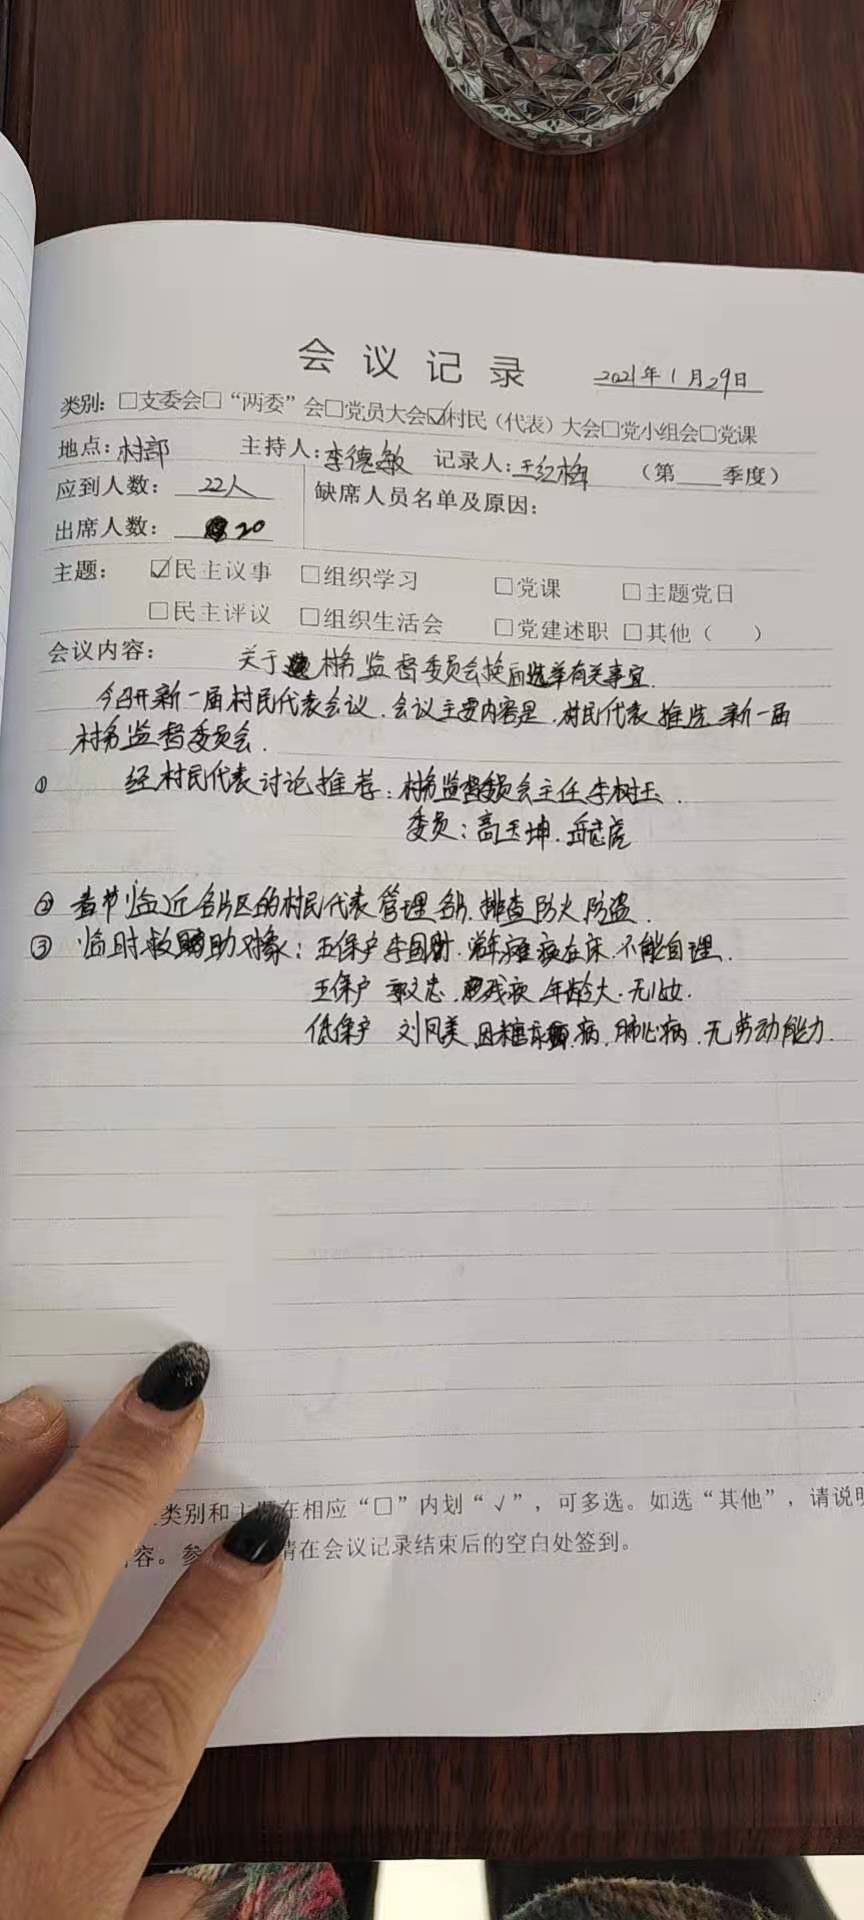 会议记录
2021年1月29日
类别：□支委会□“两委”会□党员大会☑村民（代表）大会□党小组会□党课
地点：村部 主持人：李德敏 记录人：王红梅 （第 季度）
应到人数：22人 缺席人员名单及原因：
出席人数：20
主题：☑民主议事 □组织学习 □党课 □主题党日
□民主评议 □组织生活会 □党建述职 □其他（ ）
会议内容： 关于村务监督委员会换届选举有关事宜.
今日开新一届村民代表会议.会议主要内容是.村民代表推选新一届
村务监督委员会.
① 经村民代表讨论推荐：村务监督委员会主任李树玉.
委员：高玉坤.岳志虎
② 春节临近各片区的村民代表管理各片.排查防火防盗.
③ 临时救助对象：五保户李国财.常年瘫痪在床.不能自理.
五保户 郭文志.残疾 年龄大.无儿女.
低保户 刘凤美 因糖尿病.肺心病.无劳动能力.
类别和主题在相应“□”内划“√”，可多选。如选“其他”，请说明
容。参 请在会议记录结束后的空白处签到。